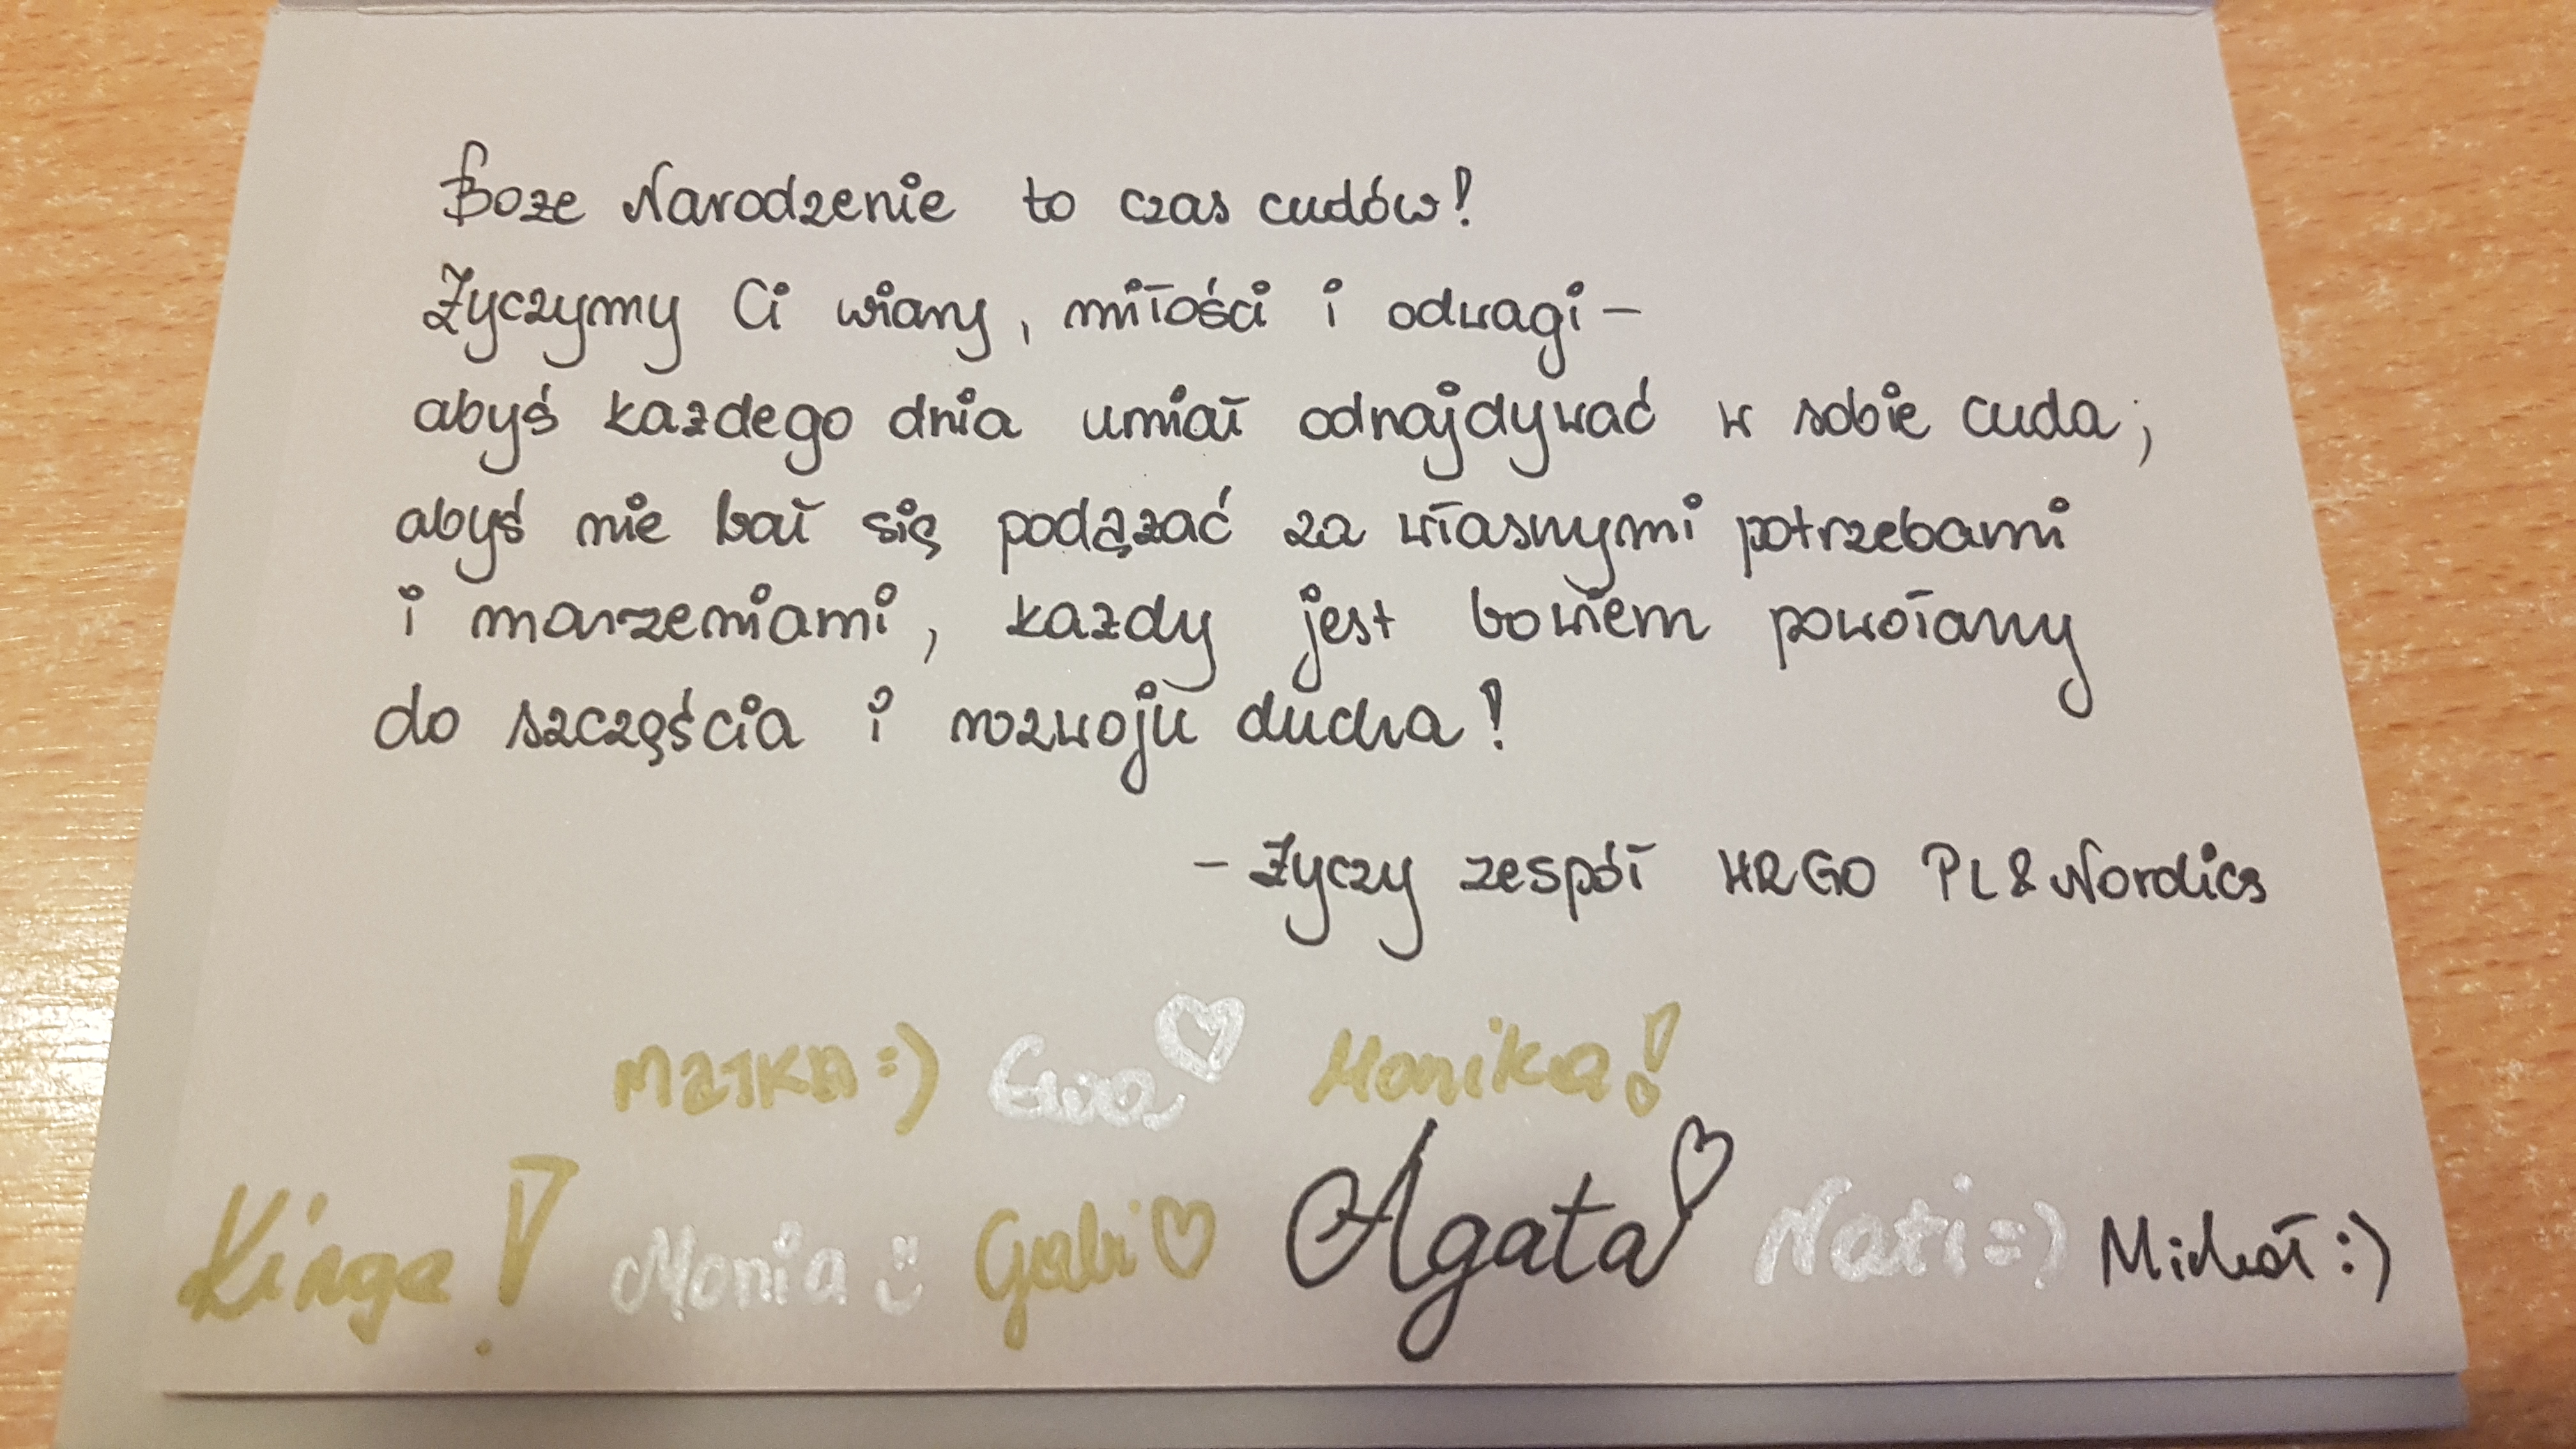 Boże Narodzenie to czas cudów!
Życzymy Ci wiary, miłości i odwagi -
abyś każdego dnia umiał odnajdywać w sobie cuda;
abyś nie bał się podążać za własnymi potrzebami
i marzeniami, każdy jest bowiem powołany
do szczęścia i rozwoju ducha!
- Życzy zespół HRGO PL & Nordics
:) Ewa ♡ Monika!
Kinga! Monia :) Gabi ♡ Agata ♡ Nati =) Michał :)